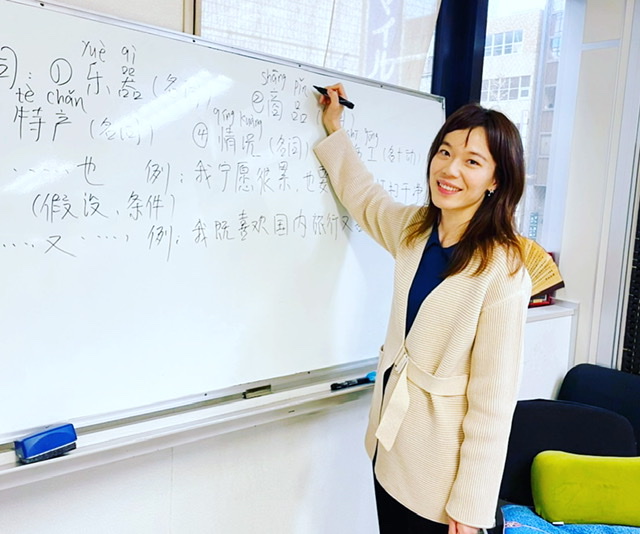 マイル
yuè qì shāng pǐn
：① 乐器 (名 ② 商品
tè chǎn qíng kuàng
特产 (名词) ④ 情况 (名词) 工
……也 例：我宁愿很累，也要
(假设、条件)
……又……，例：我既喜欢国内旅行又